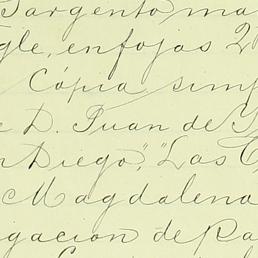 Sargento ma
gle, enfojas 2
Cópia simp
e D. Juan de
n Diego," "Las
Magdalena
igacion de Ra